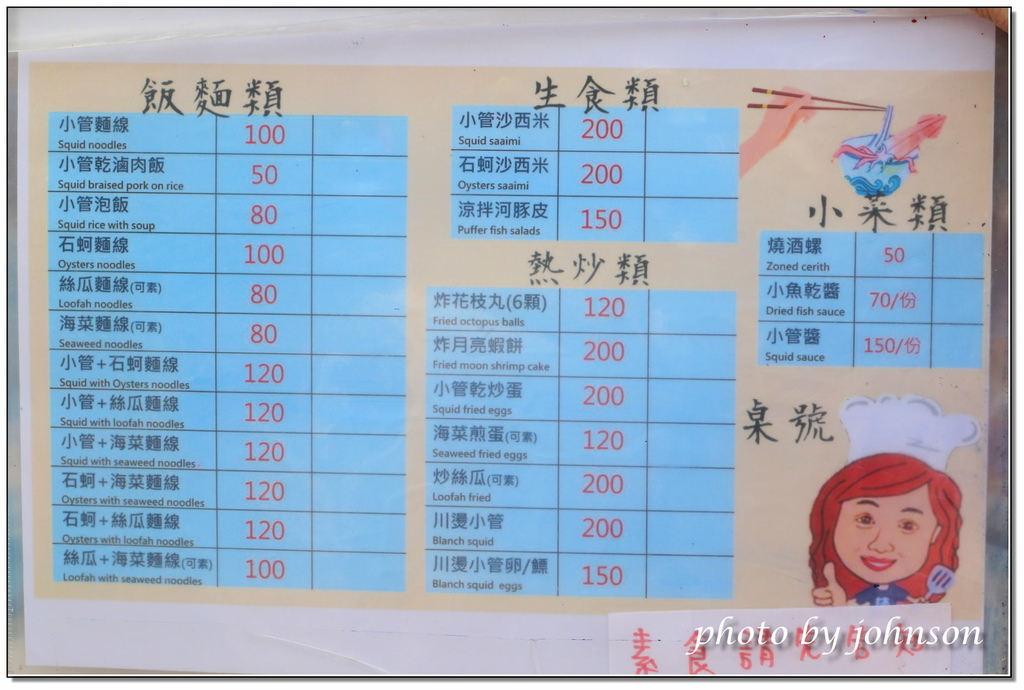 飯麵類
小管麵線 100
Squid noodles
小管乾滷肉飯 50
Squid braised pork on rice
小管泡飯 80
Squid rice with soup
石蚵麵線 100
Oysters noodles
絲瓜麵線(可素) 80
Loofah noodles
海菜麵線(可素) 80
Seaweed noodles
小管+石蚵麵線 120
Squid with Oysters noodles
小管+絲瓜麵線 120
Squid with loofah noodles
小管+海菜麵線 120
Squid with seaweed noodles
石蚵+海菜麵線 120
Oysters with seaweed noodles
石蚵+絲瓜麵線 120
Oysters with loofah noodles
絲瓜+海菜麵線(可素) 100
Loofah with seaweed noodles
生食類
小管沙西米 200
Squid saaimi
石蚵沙西米 200
Oysters saaimi
涼拌河豚皮 150
Puffer fish salads
熱炒類
炸花枝丸(6顆) 120
Fried octopus balls
炸月亮蝦餅 200
Fried moon shrimp cake
小管乾炒蛋 200
Squid fried eggs
海菜煎蛋(可素) 120
Seaweed fried eggs
炒絲瓜(可素) 200
Loofah fried
川燙小管 200
Blanch squid
川燙小管卵/鰾 150
Blanch squid eggs
小菜類
燒酒螺 50
Zoned cerith
小魚乾醬 70/份
Dried fish sauce
小管醬 150/份
Squid sauce
桌號
素食請先告知
photo by johnson